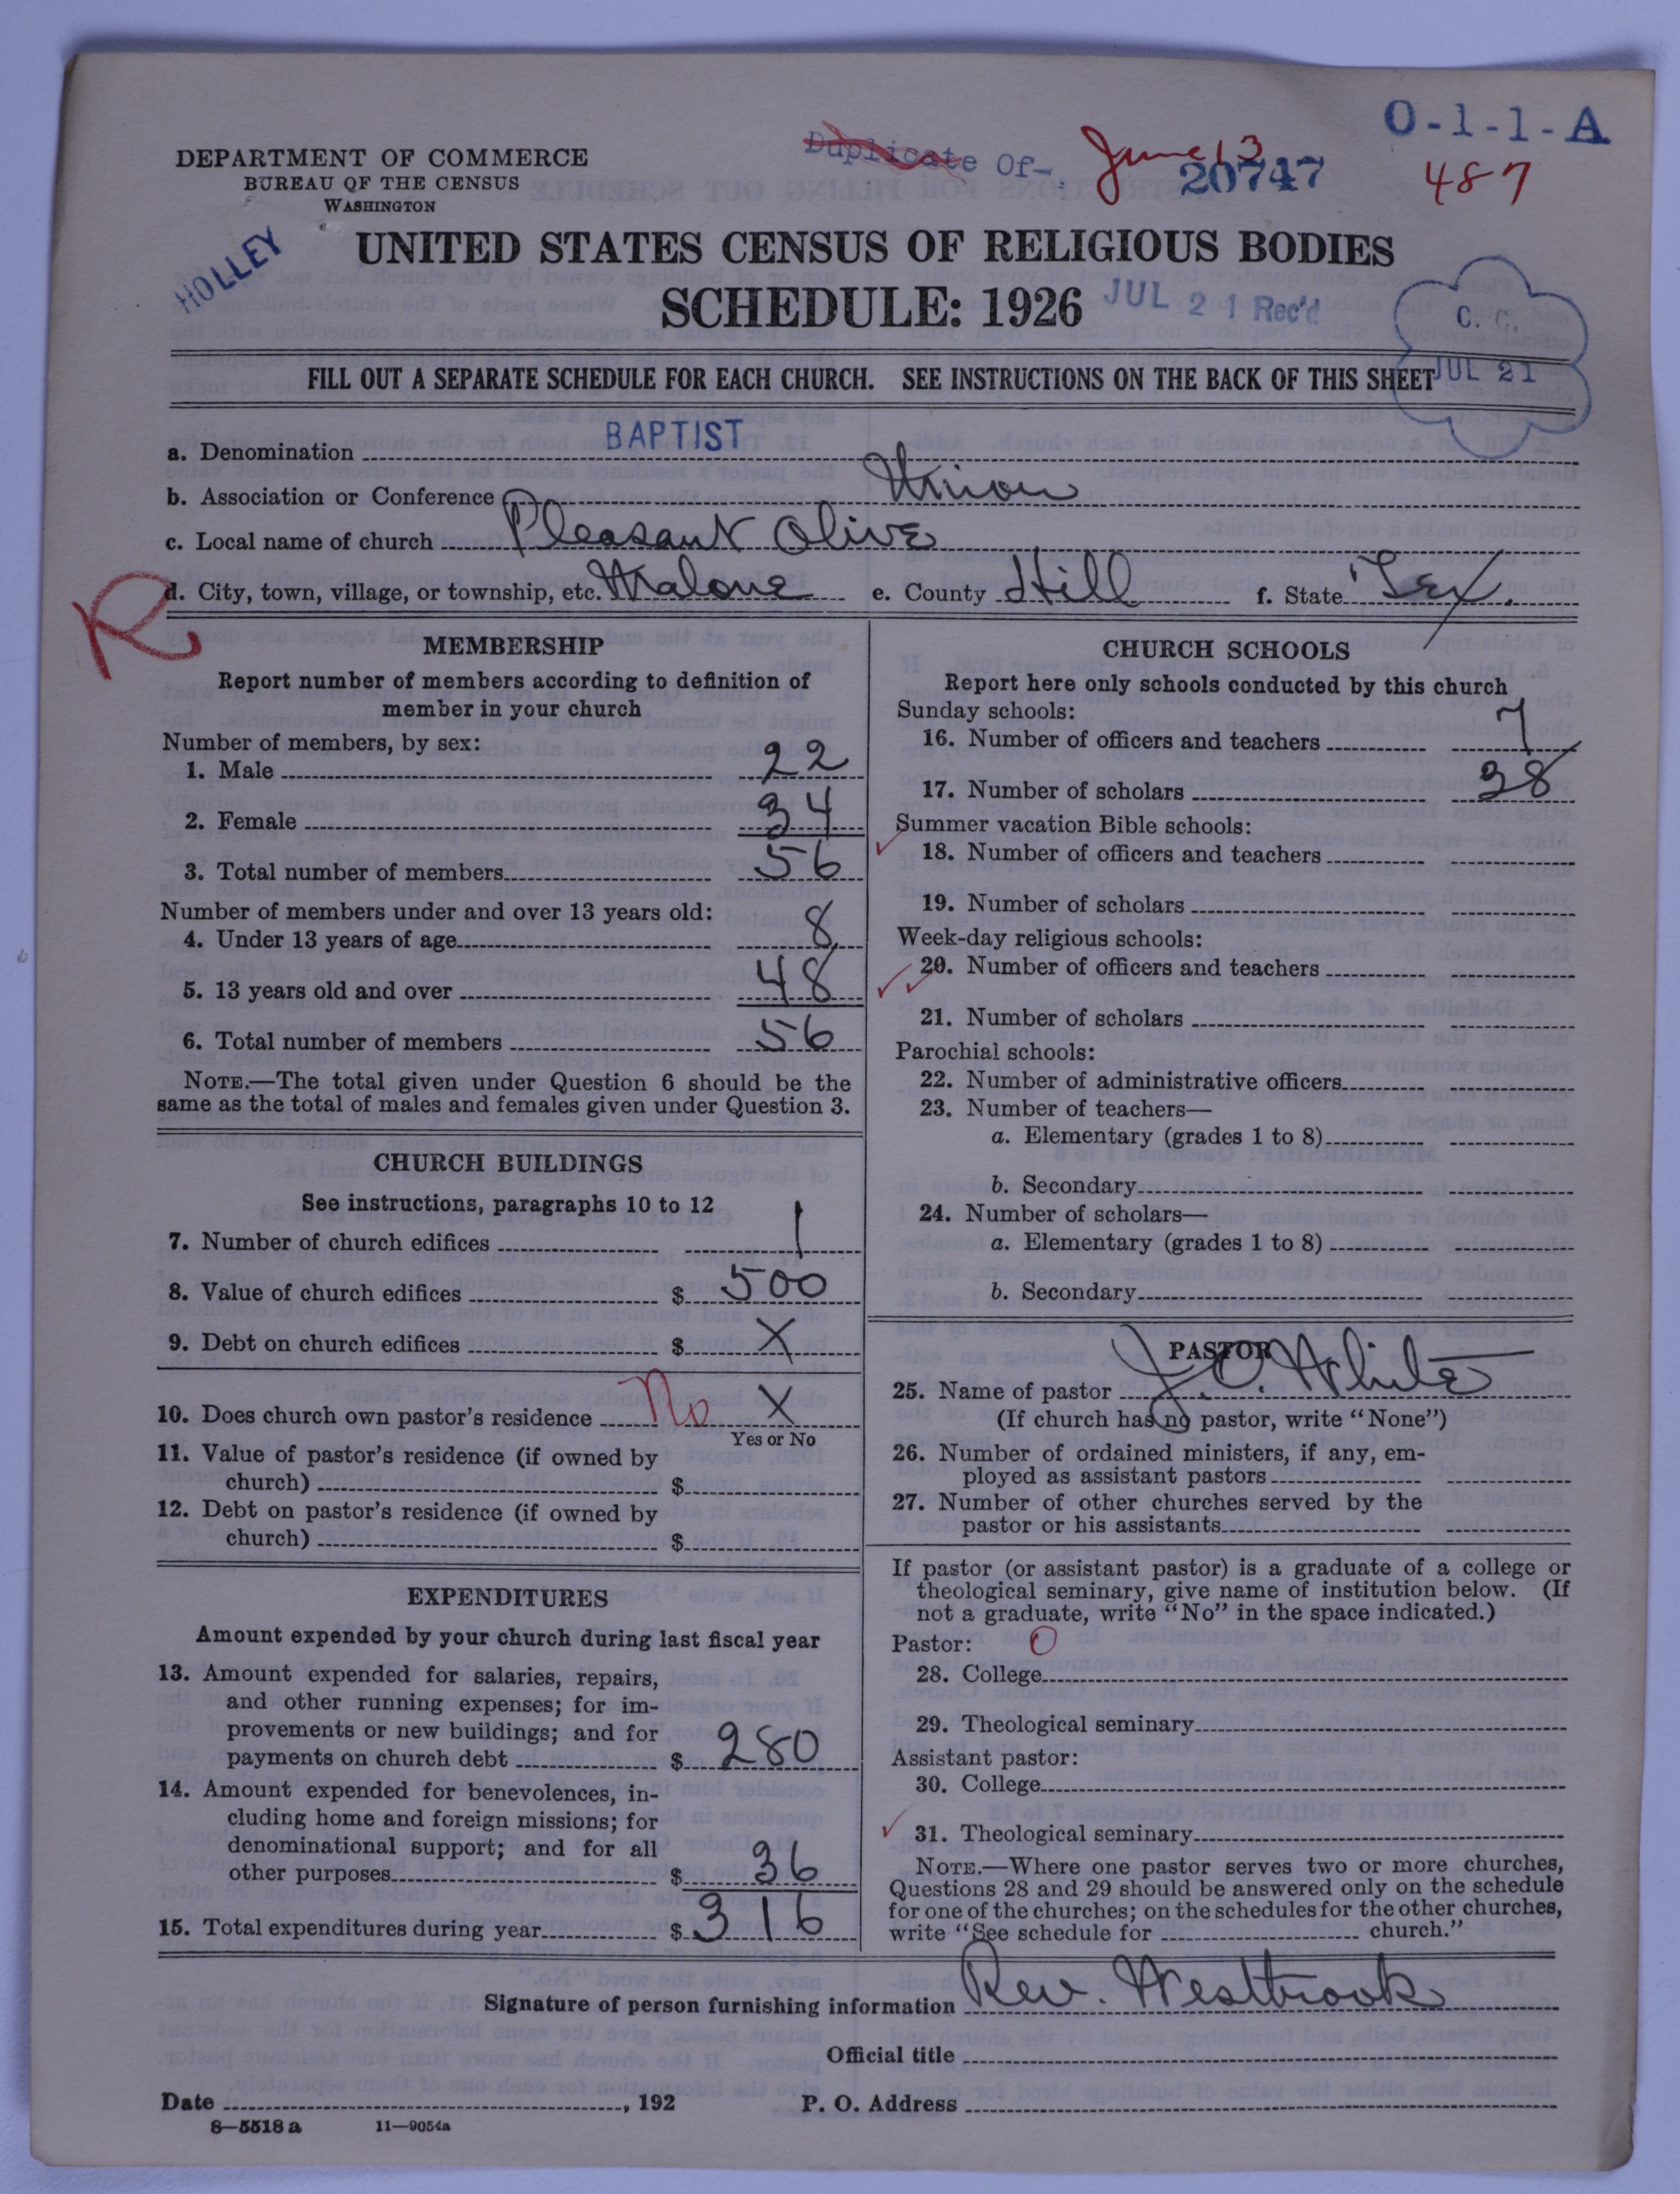 O-1-1-A
Duplicate Of-
June 13
20747
487
DEPARTMENT OF COMMERCE
BUREAU OF THE CENSUS
WASHINGTON
HOLLEY
UNITED STATES CENSUS OF RELIGIOUS BODIES
SCHEDULE: 1926
JUL 21 Rec'd
C. C.
JUL 21
FILL OUT A SEPARATE SCHEDULE FOR EACH CHURCH. SEE INSTRUCTIONS ON THE BACK OF THIS SHEET
a. Denomination BAPTIST
b. Association or Conference Union
c. Local name of church Pleasant Olive
d. City, town, village, or township, etc. Malone e. County Hill f. State Tex.
R
MEMBERSHIP
Report number of members according to definition of
member in your church
Number of members, by sex:
1. Male 22
2. Female 34
3. Total number of members 56
Number of members under and over 13 years old:
4. Under 13 years of age 8
5. 13 years old and over 48
6. Total number of members 56
NOTE.—The total given under Question 6 should be the
same as the total of males and females given under Question 3.
CHURCH BUILDINGS
See instructions, paragraphs 10 to 12
7. Number of church edifices 1
8. Value of church edifices $ 500
9. Debt on church edifices $ X
10. Does church own pastor's residence No X
Yes or No
11. Value of pastor's residence (if owned by
church) $
12. Debt on pastor's residence (if owned by
church) $
EXPENDITURES
Amount expended by your church during last fiscal year
13. Amount expended for salaries, repairs,
and other running expenses; for im-
provements or new buildings; and for
payments on church debt $ 280
14. Amount expended for benevolences, in-
cluding home and foreign missions; for
denominational support; and for all
other purposes $ 36
15. Total expenditures during year $ 316
CHURCH SCHOOLS
Report here only schools conducted by this church
Sunday schools:
16. Number of officers and teachers 7
17. Number of scholars 38
Summer vacation Bible schools:
18. Number of officers and teachers
19. Number of scholars
Week-day religious schools:
20. Number of officers and teachers
21. Number of scholars
Parochial schools:
22. Number of administrative officers
23. Number of teachers—
a. Elementary (grades 1 to 8)
b. Secondary
24. Number of scholars—
a. Elementary (grades 1 to 8)
b. Secondary
PASTOR
25. Name of pastor J. C. White
(If church has no pastor, write "None")
26. Number of ordained ministers, if any, em-
ployed as assistant pastors
27. Number of other churches served by the
pastor or his assistants
If pastor (or assistant pastor) is a graduate of a college or
theological seminary, give name of institution below. (If
not a graduate, write "No" in the space indicated.)
Pastor: O
28. College
29. Theological seminary
Assistant pastor:
30. College
31. Theological seminary
NOTE.—Where one pastor serves two or more churches,
Questions 28 and 29 should be answered only on the schedule
for one of the churches; on the schedules for the other churches,
write "See schedule for church."
Signature of person furnishing information Rev. Westbrook
Official title
Date , 192 P. O. Address
8—5518 a 11—9054a